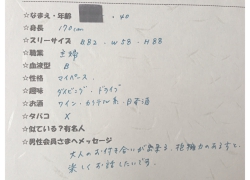 ☆なまえ・年齢 ・40
☆身長 170cm
☆スリーサイズ B82．W58．H88
☆職業 主婦
☆血液型 B
☆性格 マイペース．
☆趣味 ダイビング．ドライブ
☆お酒 ワイン・カクテル系・日本酒
☆タバコ ×
☆似ている?有名人
☆男性会員さまへメッセージ
大人のお付き合いが出来る、包容力のある方と、
楽しくお話したいです。